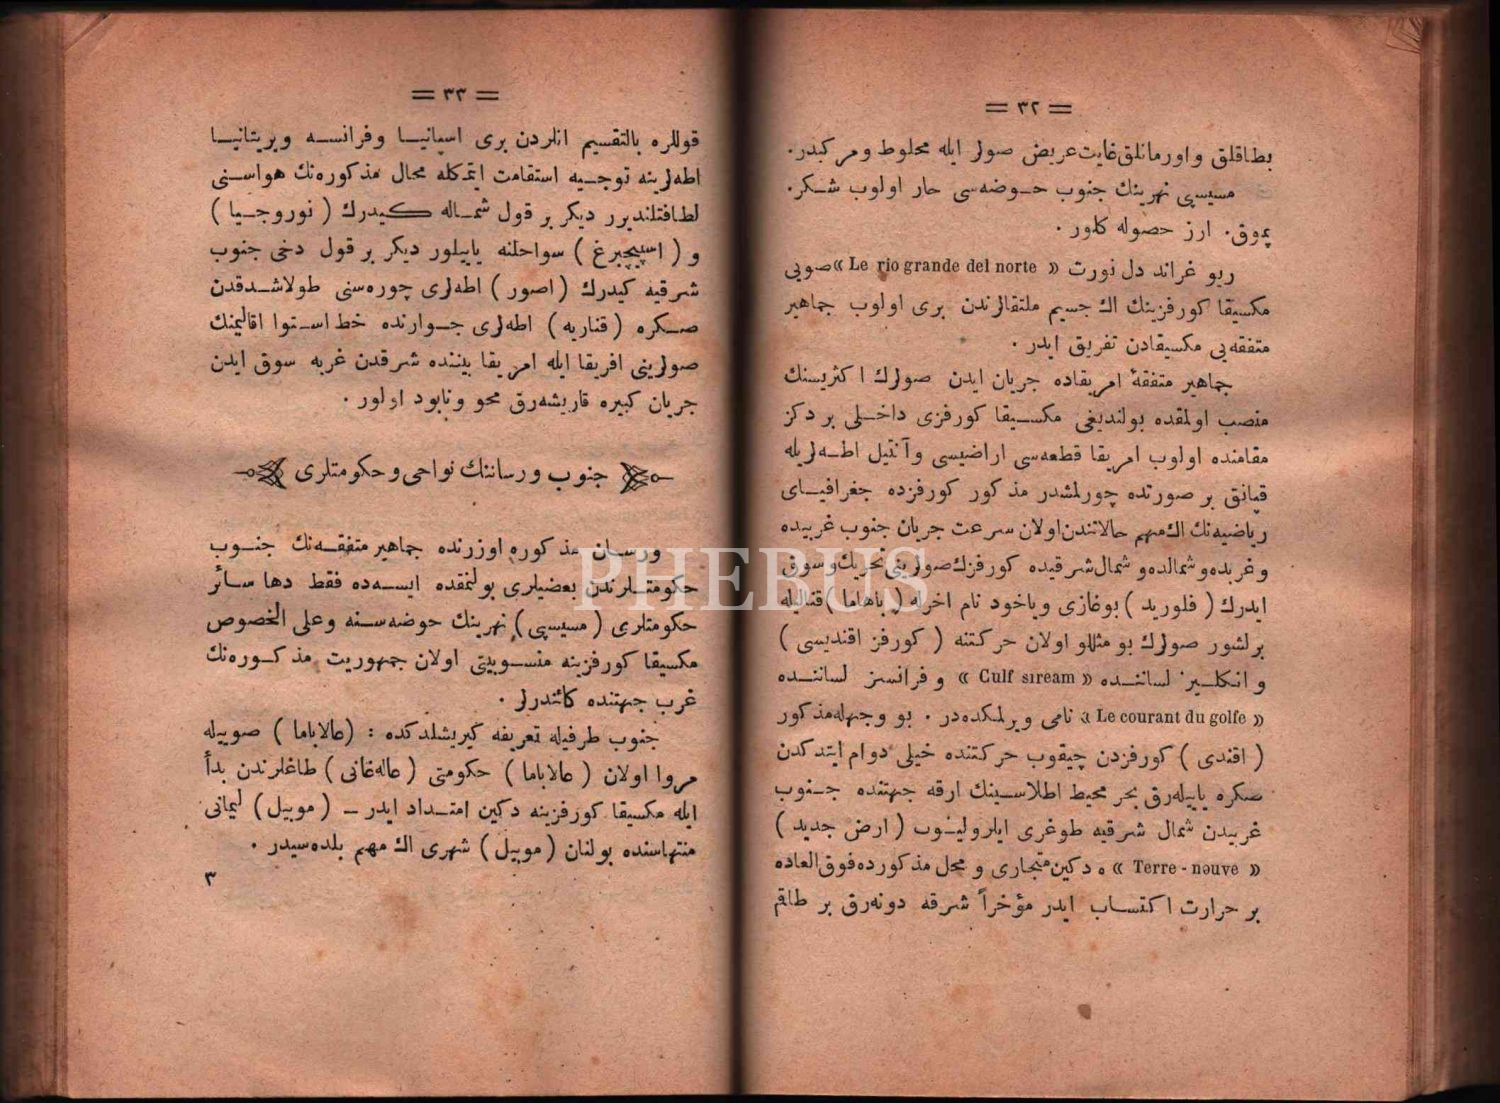 = ٣٢ =
بطاقلق و اورمانلق غایت عریض صولر ایله مخلوط و مرکبدر.
مسیسپی نهرینك جنوب حوضه‌سی حار اولوب شکر.
پموق. ارز حصوله کلور .
ریو غراند دل نورت « Le rio grande del norte » صویی
مکسیقا کورفزینك اك جسیم ملتقالرندن بری اولوب جماهیر
متفقه‌یی مکسیقادن تفریق ایدر .
جماهیر متفقهٔ امریقاده جریان ایدن صولرك اکثریسنك
منصب اولمقده بولندیغی مکسیقا کورفزی داخلی بر دکز
مقامنده اولوب امریقا قطعه‌سی اراضیسی و آنتیل اطه‌لریله
قپانق بر صورتده چورلمشدر مذکور کورفزده جغرافیای
ریاضیه‌نك اك مهم حالاتندن اولان سرعت جریان جنوب غربیده
و غربده و شمالده و شمال شرقیده کورفزك صولرینی تحریك و سوق
ایدرك ( فلورید ) بوغازی و یاخود نام اخرله ( باهاما ) قنالیله
برلشور صولرك بو مثللو اولان حرکتنه ( کورفز اقندیسی )
و انکلیز لساننده « Culf sıream » و فرانسز لساننده
« Le courant du golfe » نامی ویرلمکده‌در . بو وجهله مذکور
( اقندی ) کورفزدن چیقوب حرکتنده خیلی دوام ایتدکدن
صکره یاییله‌رق بحر محیط اطلاسینك ارقه جهتنده جنوب
غربیدن شمال شرقیه طوغری ایلرولیوب ( ارض جدید )
« Terre - neuve » ه دکین متجاری و محل مذکورده فوق العاده
بر حرارت اکتساب ایدر مؤخراً شرقه دونه‌رق بر طاقم
= ٣٣ =
قوللره بالتقسیم انلردن بری اسپانیا و فرانسه و بریتانیا
اطه‌لرینه توجیه استقامت ایتمکله محال مذکوره‌نك هواسنی
لطافتلندیرر دیکر بر قول شماله کیدرك ( نوروجیا )
و ( اسپیچبرغ ) سواحلنه یاییلور دیکر بر قول دخی جنوب
شرقیه کیدرك ( اصور ) اطه‌لری چوره‌سنی طولاشدقدن
صکره ( قناریه ) اطه‌لری جوارنده خط استوا اقالیمنك
صولرینی افریقا ایله امریقا بیننده شرقدن غربه سوق ایدن
جریان کبیره قاریشه‌رق محو و نابود اولور .
جنوب ورساننك نواحی و حکومتلری
ورسان مذکوره اوزرنده جماهیر متفقه‌نك جنوب
حکومتلرندن بعضیلری بولنمقده ایسه‌ده فقط دها سائر
حکومتلری ( مسیسپی ) نهرینك حوضه‌سنه و علی الخصوص
مکسیقا کورفزینه منسوبیتی اولان جمهوریت مذکوره‌نك
غرب جهتنده کائندرلر .
جنوب طرفیله تعریفه کیریشلدکده : ( عالاباما ) صوییله
مروا اولان ( عالاباما ) حکومتی ( عاله‌غانی ) طاغلرندن بدأ
ایله مکسیقا کورفزینه دکین امتداد ایدر ــ ( موبیل ) لیمانی
منتهاسنده بولنان ( موبیل ) شهری اك مهم بلده‌سیدر .
٣
PHEBUS